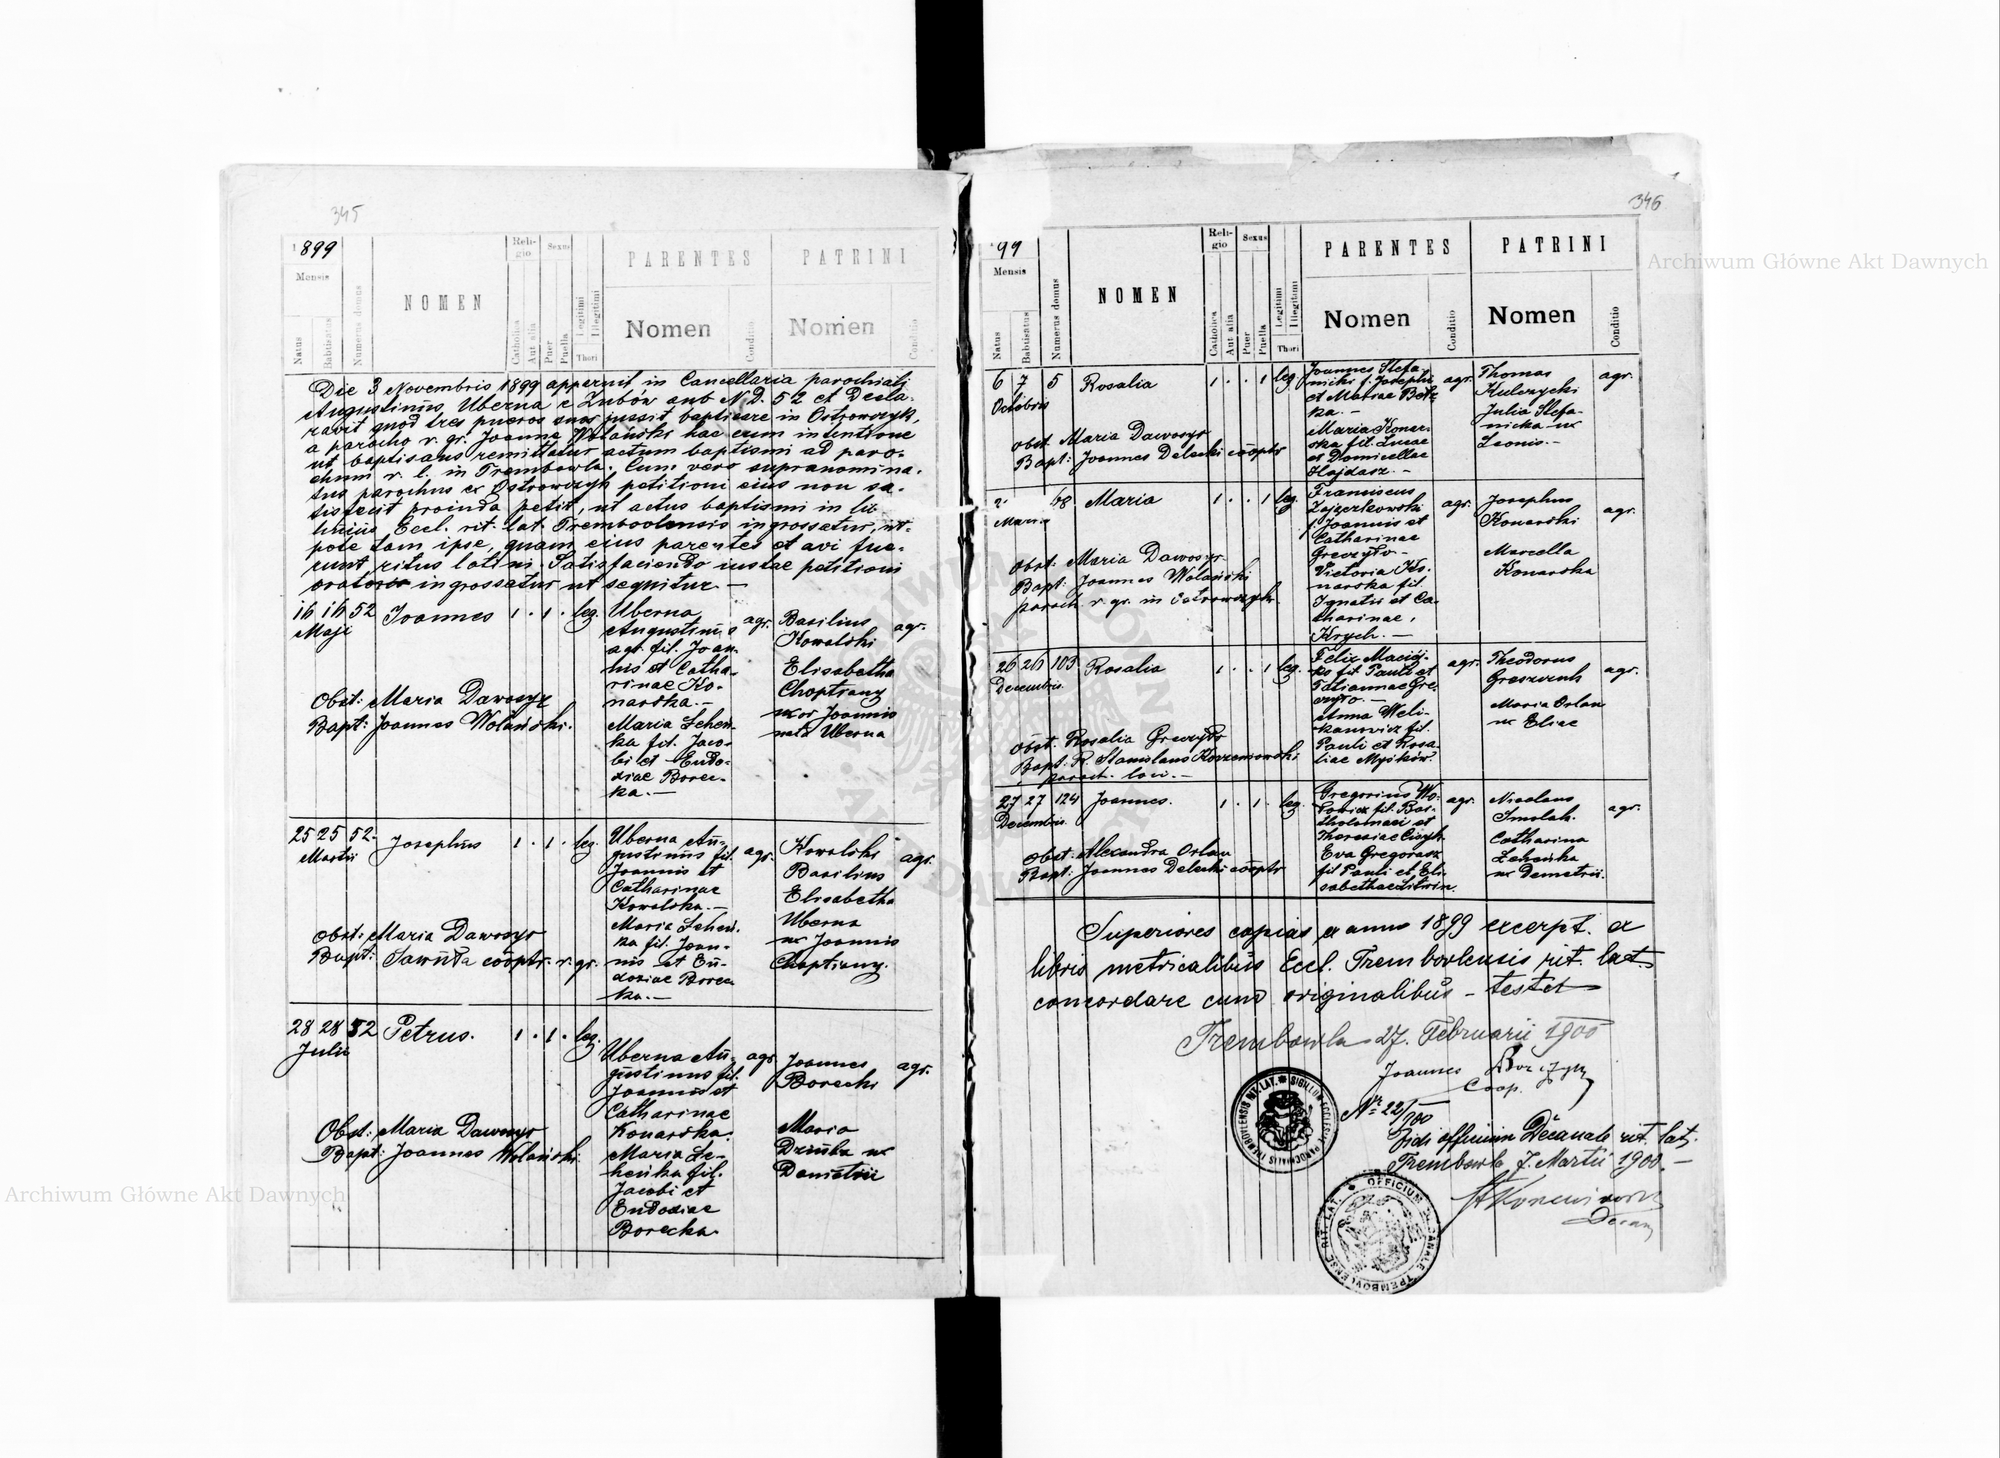 345
1899
Mensis
Natus
Babtisatus
Numerus domus
NOMEN
Reli-
gio
Catholica
Aut alia
Sexus
Puer
Puella
Legitimi
Illegitimi
Thori
PARENTES
Nomen
Conditio
PATRINI
Nomen
Conditio
Die 3 Novembris 1899 apperuit in Cancellaria parochiali
Augustinus Uberna e Zubów sub N.D. 52 et Decla-
ravit quod tres pueros suos jussit baptisare in Ostrowczyk,
a parocho r. gr. Joanne Wolański hac cum intentione
ut baptisans remittatur actum baptismi ad paro-
chum r. l. in Trembowla. Cum vero supranomina-
tus parochus ex Ostrowczyk petitioni eius non sa-
tisfecit proinde petit, ut actus baptismi in lib
huius Eccl. rit. lat. Tremboolensis ingrossatur, ut-
pote tam ipse, quam eius parentes et avi fue-
runt ritus latini. Satisfaciendo iustae petitioni
oratoris ingrossatur ut sequitur. —
16 16 52 Joannes 1 . 1 . leg.
Maji
Uberna
Augustinus
agr. fil. Joan-
nis et Catha-
rinae Ko-
narska. —
Maria Leheń-
ka fil. Jaco-
bi et Eudo-
xiae Borec-
ka. —
agr.
Basilius
Kowalski
Elisabetha
Choptiany
uxor Joannis
nata Uberna
agr.
Obst: Maria Dawosyr
Bapt: Joannes Wolański.
25 25 52. Josephus 1 . 1 . leg.
Martii
Uberna Au-
gustinus fil.
Joannis et
Catharinae
Kowalska. —
Maria Leheń-
ka fil. Joan-
nis et Eu-
doxiae Borec-
ka. —
agr.
Kowalski
Basilius
Elisabetha
Uberna
ux Joannis
Choptiany.
agr.
Obst: Maria Dawosyr
Bapt: Sawuta coöptr. r. gr.
28 28 52 Petrus. 1 . 1 . leg.
Julii
Uberna Au-
gustinus fil.
Joannis et
Catharinae
Konarska.
Maria Le-
heńka fil.
Jacobi et
Eudoxiae
Borecka.
agr.
Joannes
Borecki
Maria
ux
Demetrii
agr.
Obst: Maria Dawosyr
Bapt: Joannes Wolański.
346
99
Mensis
Natus
Babtisatus
Numerus domus
NOMEN
Reli-
gio
Catholica
Aut alia
Sexus
Puer
Puella
Legitimi
Illegitimi
Thori
PARENTES
Nomen
Conditio
PATRINI
Nomen
Conditio
6 7 5 Rosalia 1 . . 1 leg.
Octobris
Joannes Stefa-
nicki f. Josephi
et Mariae Betz-
ka. —
Maria Konar-
ska fil. Lucae
et Domicellae
Hajdasz. —
agr.
Thomas
Kulczycki
Julia Stefa-
nicka ux
Leonis. —
agr.
Obst. Maria Dawosyr
Bapt: Joannes Delecki coöptr
68 Maria 1 . . 1 leg.
Franciscus
Zajączkowski
f. Joannis et
Catharinae
Greczyło —
Victoria Ko-
narska fil.
Ignatii et Ca-
tharinae,
Krych. —
agr.
Josephus
Konarski
Marcella
Konarska
agr.
Obst: Maria Dawosyr
Bapt: Joannes Wolański
paroch. r. gr. in Ostrowczyk
26 26 103 Rosalia 1 . . 1 leg.
Decembris
Felix Maciej-
ko fil Pauli et
Tatiannae Gre-
czyło. —
Anna Weli-
kanowicz fil.
Pauli et Rosa-
liae Myśków.
agr.
Theodorus
Greszczuk
Maria Orlan
ux Eliae
agr.
Obst. Rosalia Greczyło
Bapt: R. Stanislaus Korzeniowski
paroch. loci. —
27 27 124 Joannes. 1 . 1 . leg.
Decembris
Gregorius
fil. Bar-
tholomaei et
Theresiae
Eva Gregorasz
fil Pauli et Eli-
sabethae Litwin.
agr.
Nicolaus
Smolak
Catharina
Leheńka
ux Demetrii.
agr.
Obst: Alexandra Orlan
Bapt: Joannes Delecki coöptr
Superiores copias ex anno 1899 excerpt. ex
libris metricalibus Eccl. Trembovlensis rit. lat.
concordare cum originalibus — testor
Trembowla 27. Februarii 1900
Joannes
Coop.
Nr 22/900
Vidi officium Decanale rit. lat.
Trembowla 7. Martii 1900. —
Decan
SIGILLUM ECCLESIAE PAROCHIALIS TREMBOVLENSIS RIT. LAT.
OFFICIUM DECANALE TREMBOVLENSE RITI LAT.
Archiwum Główne Akt Dawnych
Archiwum Główne Akt Dawnych